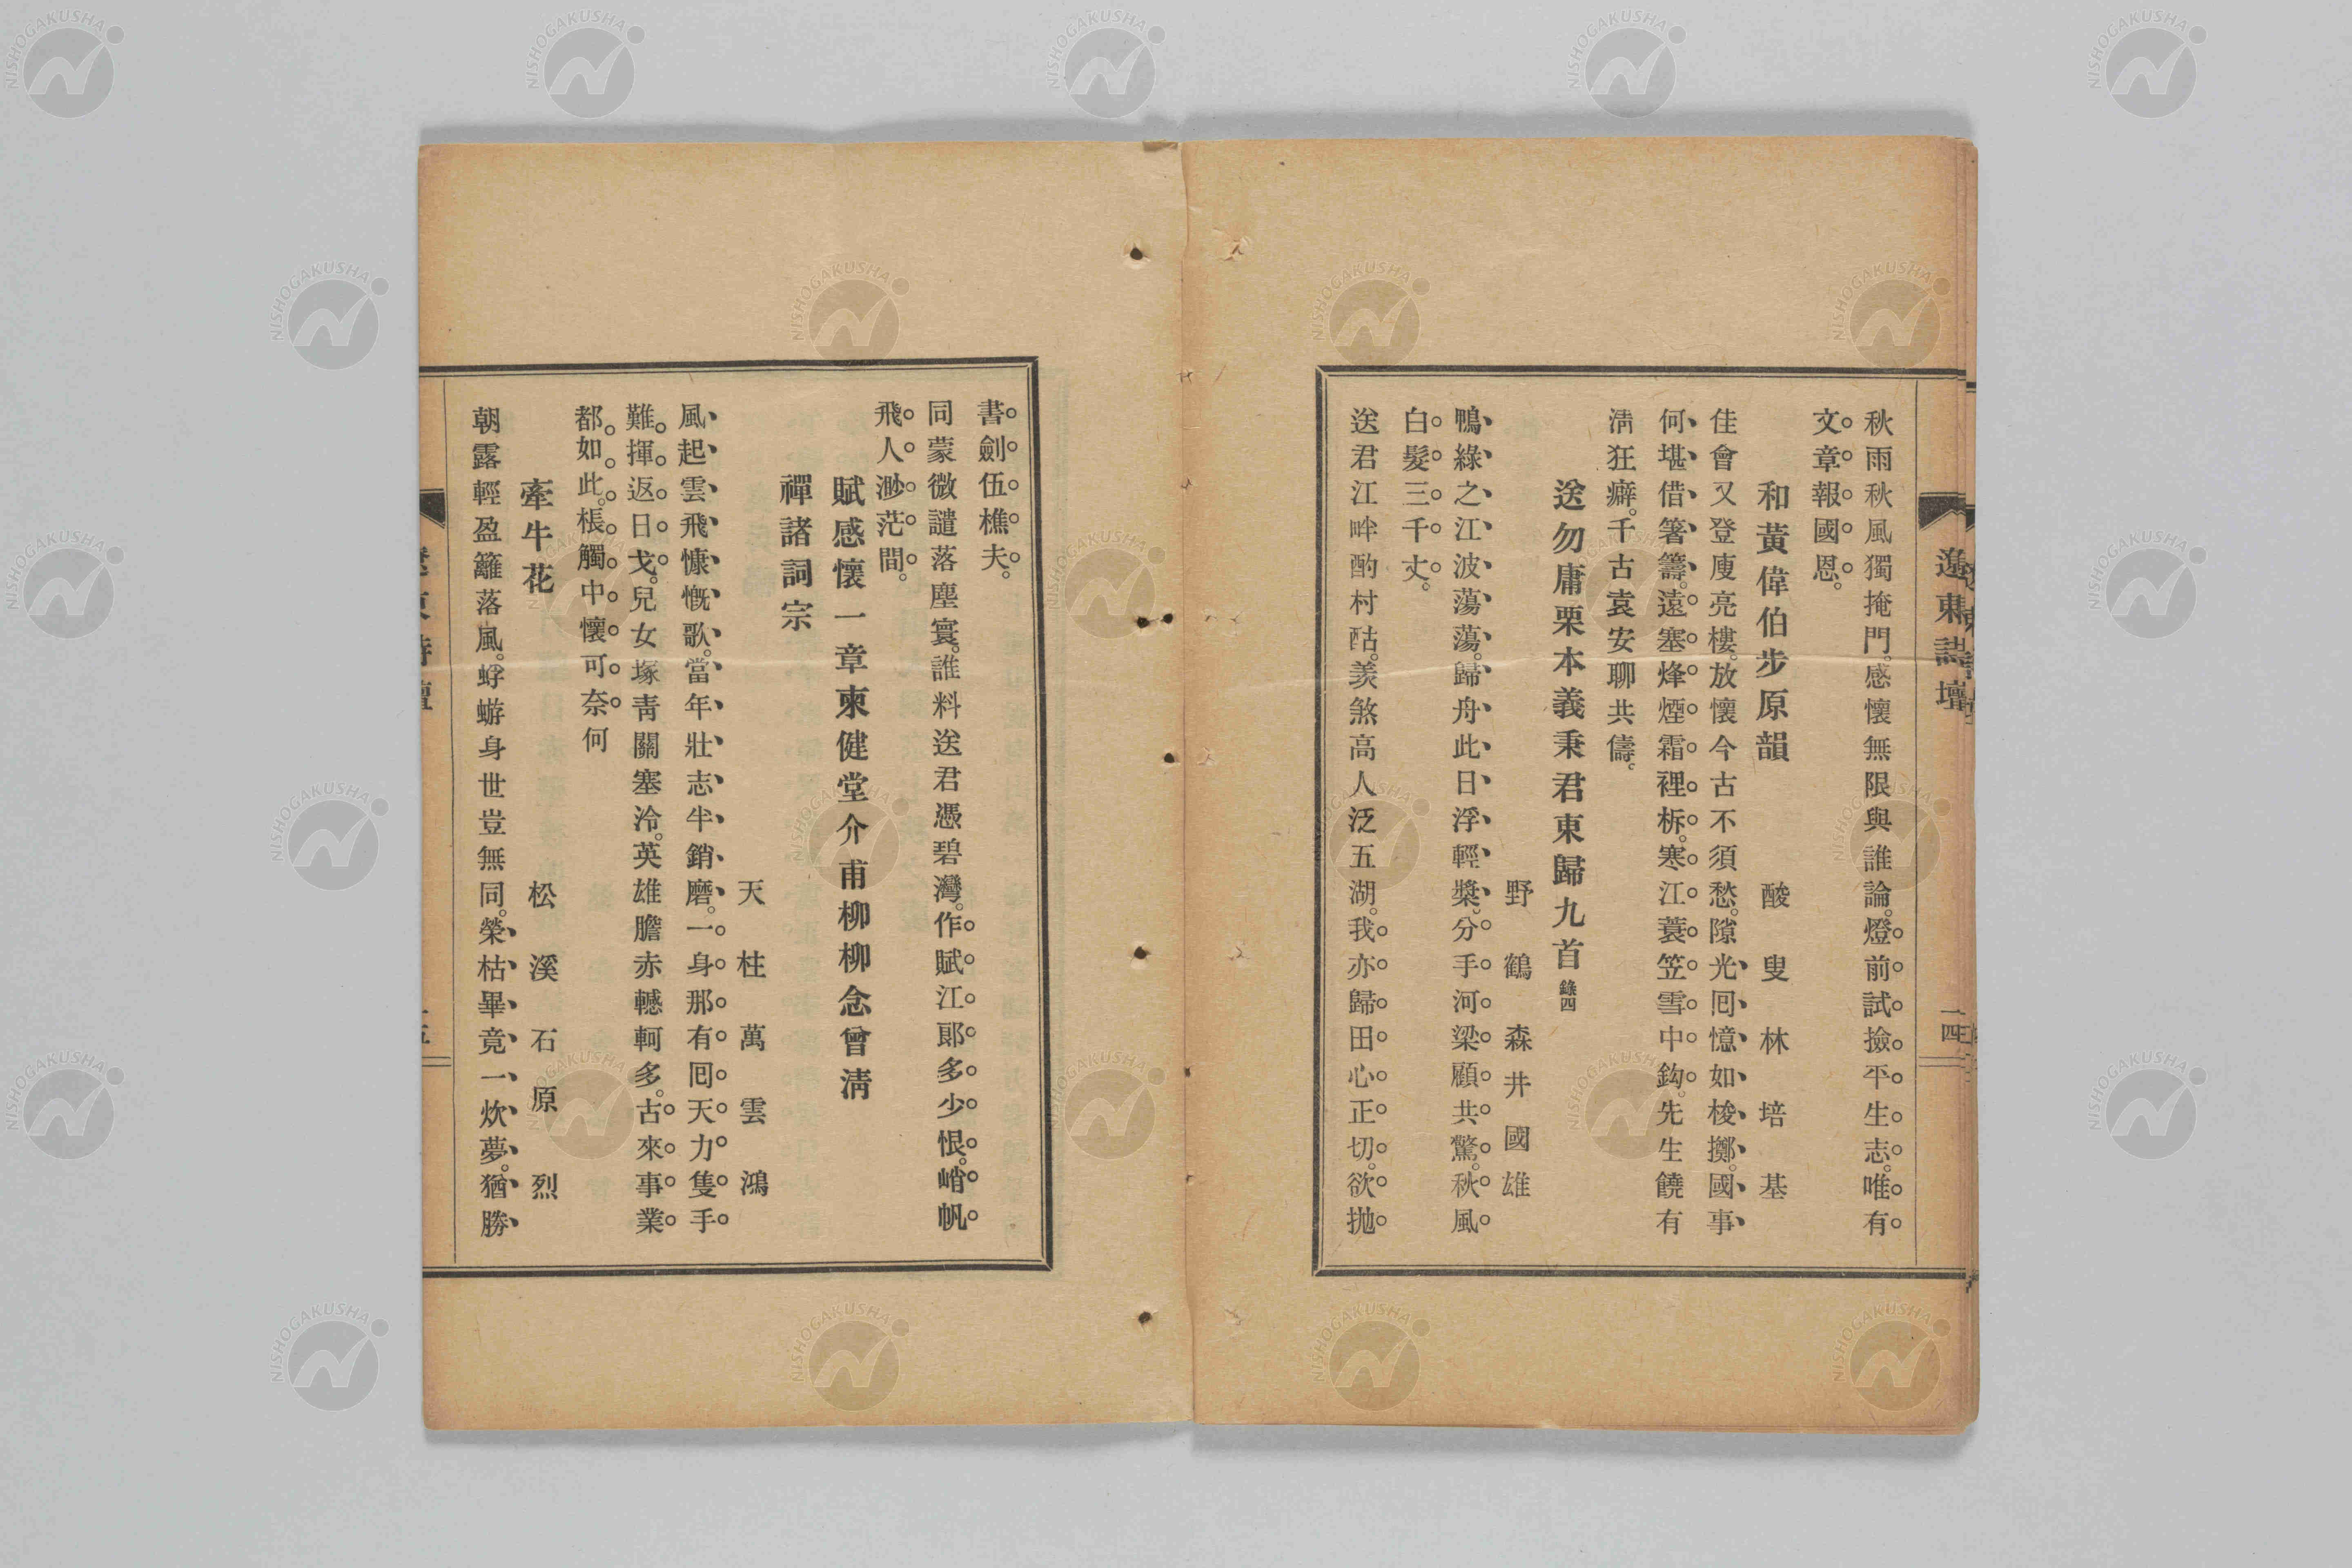 遼東詩壇
一四
秋雨秋風獨掩門。感懷無限與誰論。燈前試撿平生志。唯有
文章報國恩。
和黃偉伯步原韻
酸叟林培基
佳會又登庾亮樓。放懷今古不須愁。隙光囘憶如梭擲。國事
何堪借箸籌。遠塞烽煙霜裡柝。寒江蓑笠雪中鈎。先生饒有
淸狂癖。千古袁安聊共儔。
送勿庸栗本義秉君東歸九首 錄四
野鶴森井國雄
鴨綠之江波蕩蕩。歸舟此日浮輕槳。分手河梁顧共驚。秋風
白髮三千丈。
送君江畔酌村酤。羨煞高人泛五湖。我亦歸田心正切。欲抛
書劍伍樵夫。
同蒙微譴落塵寰。誰料送君憑碧灣。作賦江郞多少恨。峭帆
飛人渺茫間。
賦感懷一章柬健堂介甫柳柳念曾淸
禪諸詞宗
天柱萬雲鴻
風起雲飛慷慨歌。當年壯志半銷磨。一身那有囘天力。隻手
難揮返日戈。兒女塚靑關塞冷。英雄膽赤轗軻多。古來事業
都如此。棖觸中懷可奈何
牽牛花
松溪石原烈
朝露輕盈籬落風。蜉蝣身世豈無同。榮枯畢竟一炊夢。猶勝
NISHOGAKUSHA